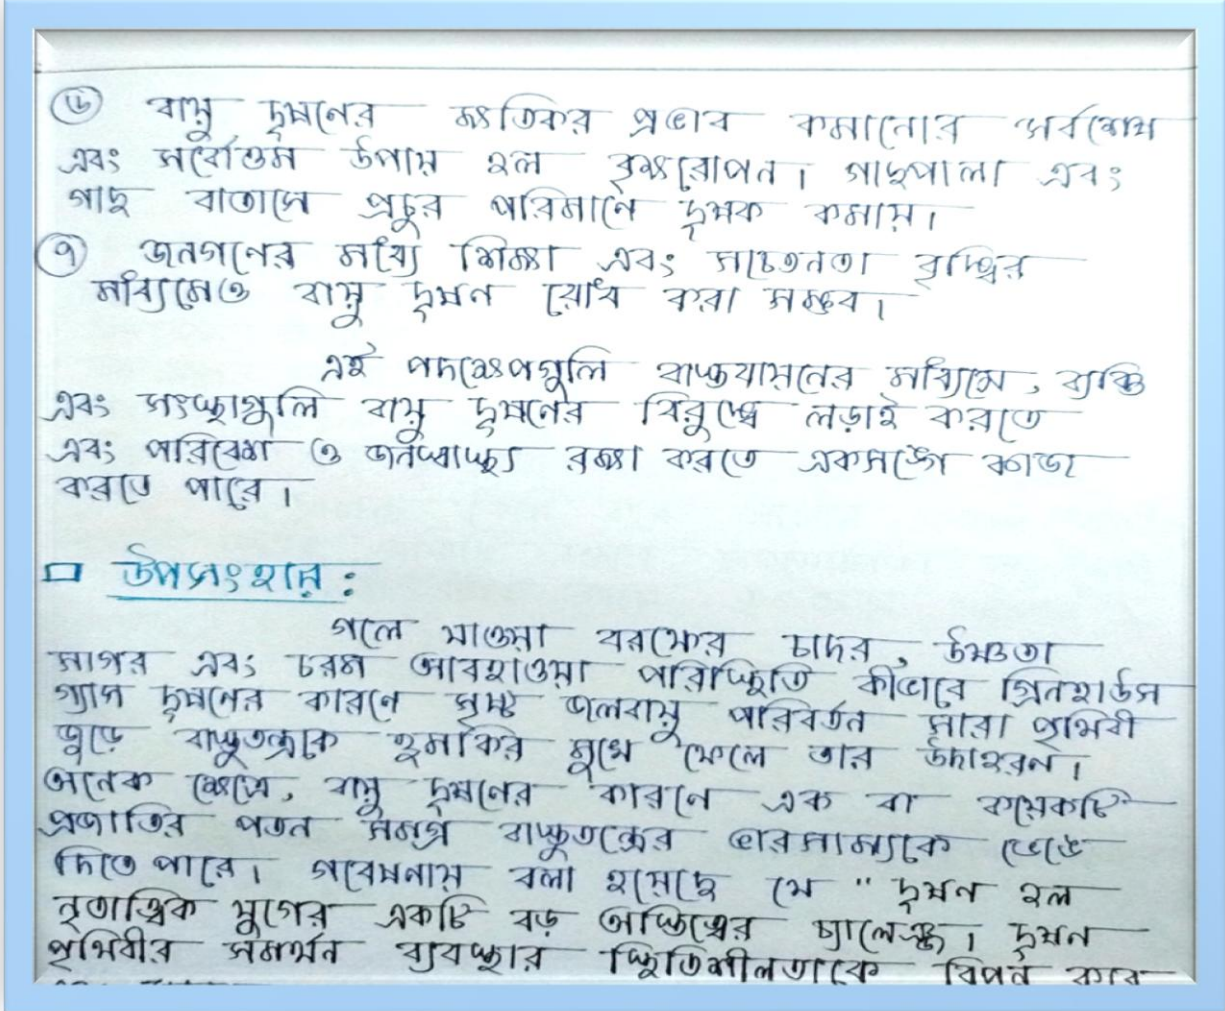 ⑥ বায়ু দূষনের ক্ষতিকর প্রভাব কমানোর সর্বশেষ
এবং সর্বোত্তম উপায় হল বৃক্ষরোপন। গাছপালা এবং
গাছ বাতাসে প্রচুর পরিমানে দূষক কমায়।
⑦ জনগনের মধ্যে শিক্ষা এবং সচেতনতা বৃদ্ধির
মাধ্যমেও বায়ু দূষন রোধ করা সম্ভব।
এই পদক্ষেপগুলি বাস্তবায়নের মাধ্যমে, ব্যক্তি
এবং সংস্থাগুলি বায়ু দূষনের বিরুদ্ধে লড়াই করতে
এবং পরিবেশ ও জনস্বাস্থ্য রক্ষা করতে একসঙ্গে কাজ
করতে পারে।
□ উপসংহার:
গলে যাওয়া বরফের চাদর, উষ্ণতা
সাগর এবং চরম আবহাওয়া পরিস্থিতি কীভাবে গ্রিনহাউস
গ্যাস দূষনের কারণে সৃষ্ট জলবায়ু পরিবর্তন সারা পৃথিবী
জুড়ে বাস্তুতন্ত্রকে হুমকির মুখে ফেলে তার উদাহরন।
অনেক ক্ষেত্রে, বায়ু দূষনের কারনে এক বা কয়েকটি
প্রজাতির পতন সমগ্র বাস্তুতন্ত্রের ভারসাম্যকে ভেঙে
দিতে পারে। গবেষনায় বলা হয়েছে যে "দূষন হল
নৃতাত্ত্বিক যুগের একটি বড় অস্তিত্বের চ্যালেঞ্জ। দূষন
পৃথিবীর সমর্থন ব্যবস্থার স্থিতিশীলতাকে বিপন্ন করে